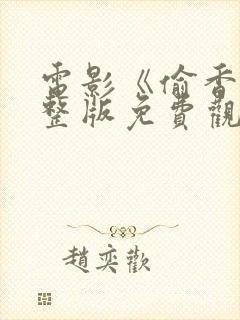 電影《偷香
整版免費觀
趙奕歡